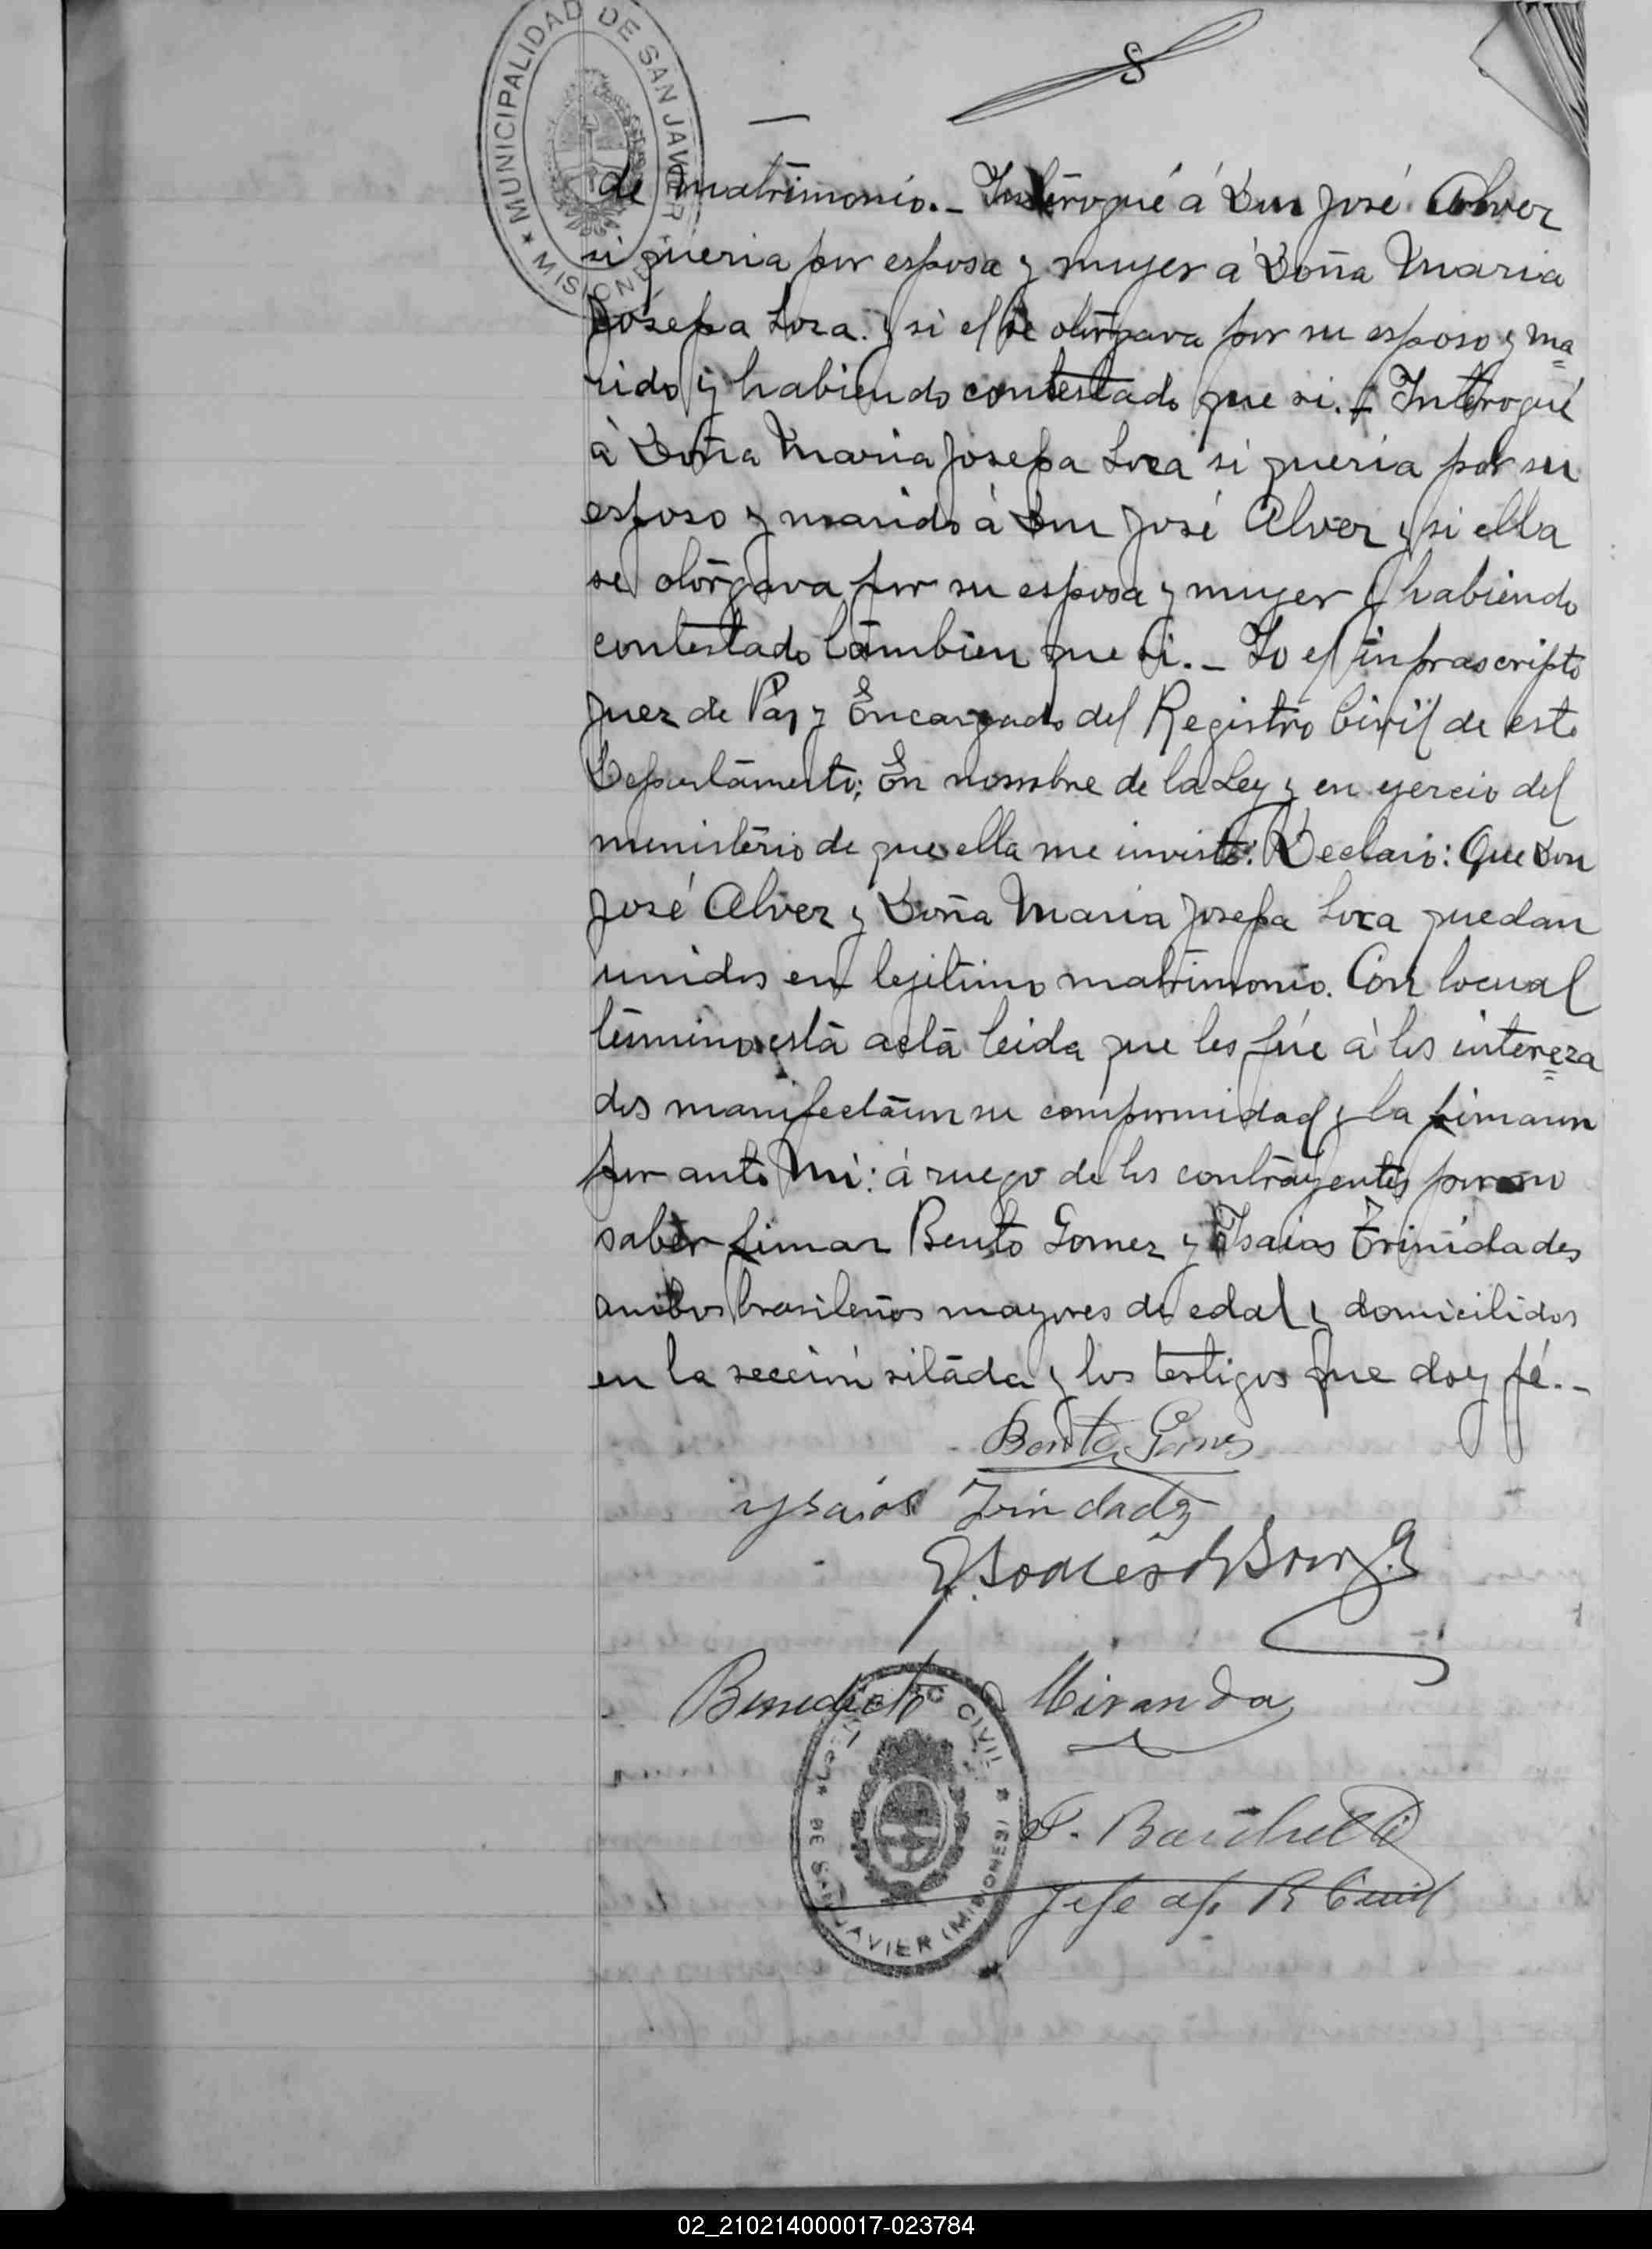 MUNICIPALIDAD DE SAN JAVIER
★ MISIONES ★
8
de matrimonio. _ Interogué á Don José Alvez
si queria por esposa y muyer a Doña Maria
Josefa Loza. y si el se otorgava por su esposo y ma
rido y habiendo contestado que si. _ Interogué
á Doña Maria Josefa Loza si queria por su
esposo y marido á Don José Alvez y si ella
se otorgava por su esposa y muyer y habiendo
contestado tambien que si. _ Yo el infrascripto
Juez de Paz y Encargado del Registro Civil de este
Departamento; En nombre de la Ley y en ejercio del
ministerio de que ella me inviste: Declaro: Que Don
José Alvez y Doña Maria Josefa Loza quedan
unidos en lejitimo matrimonio. Con locual
termino esta acta leida que les fúe á los intereza
dos manifectaron su conformidad y la firmaron
por ante Mi: á ruego de los contrayentes por no
saber firmar Bento Gomez y Isaias Trinidades
ambos brasileños mayores de edad y domicilidos
en la sección sitada y los testigos que doy fé. _
Bento Gomes
ysaias Trindade
Benedicto Miranda
CIVIL
DE SAN JAVIER (MISIONES)
Jefe of. R Civil
02_210214000017-023784